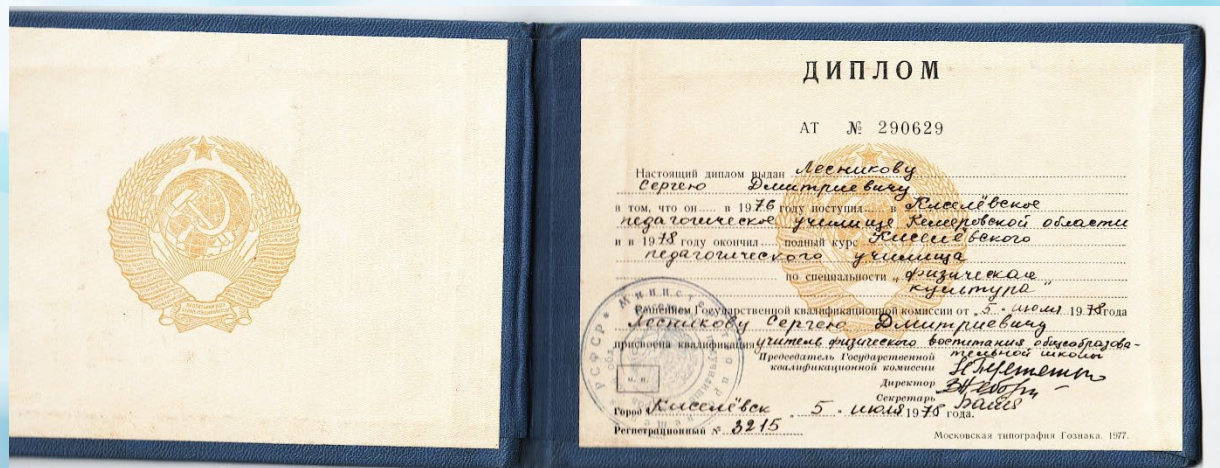 ДИПЛОМ
АТ № 290629
Настоящий диплом выдан Лесникову
Сергею Дмитриевичу
в том, что он в 1976 году поступил в Киселёвское
педагогическое училище Кемеровской области
и в 1978 году окончил полный курс Киселёвского
педагогического училища
по специальности „физическая
культура"
Решением Государственной квалификационной комиссии от „5" июля 1978 года
Лесникову Сергею Дмитриевичу
присвоена квалификация учитель физического воспитания общеобразова-
тельной школы
Председатель Государственной
квалификационной комиссии
Директор
Секретарь
Город Киселёвск 5 июля 1978 года.
Регистрационный № 3215
Московская типография Гознака. 1977.
РСФСР
м. п.